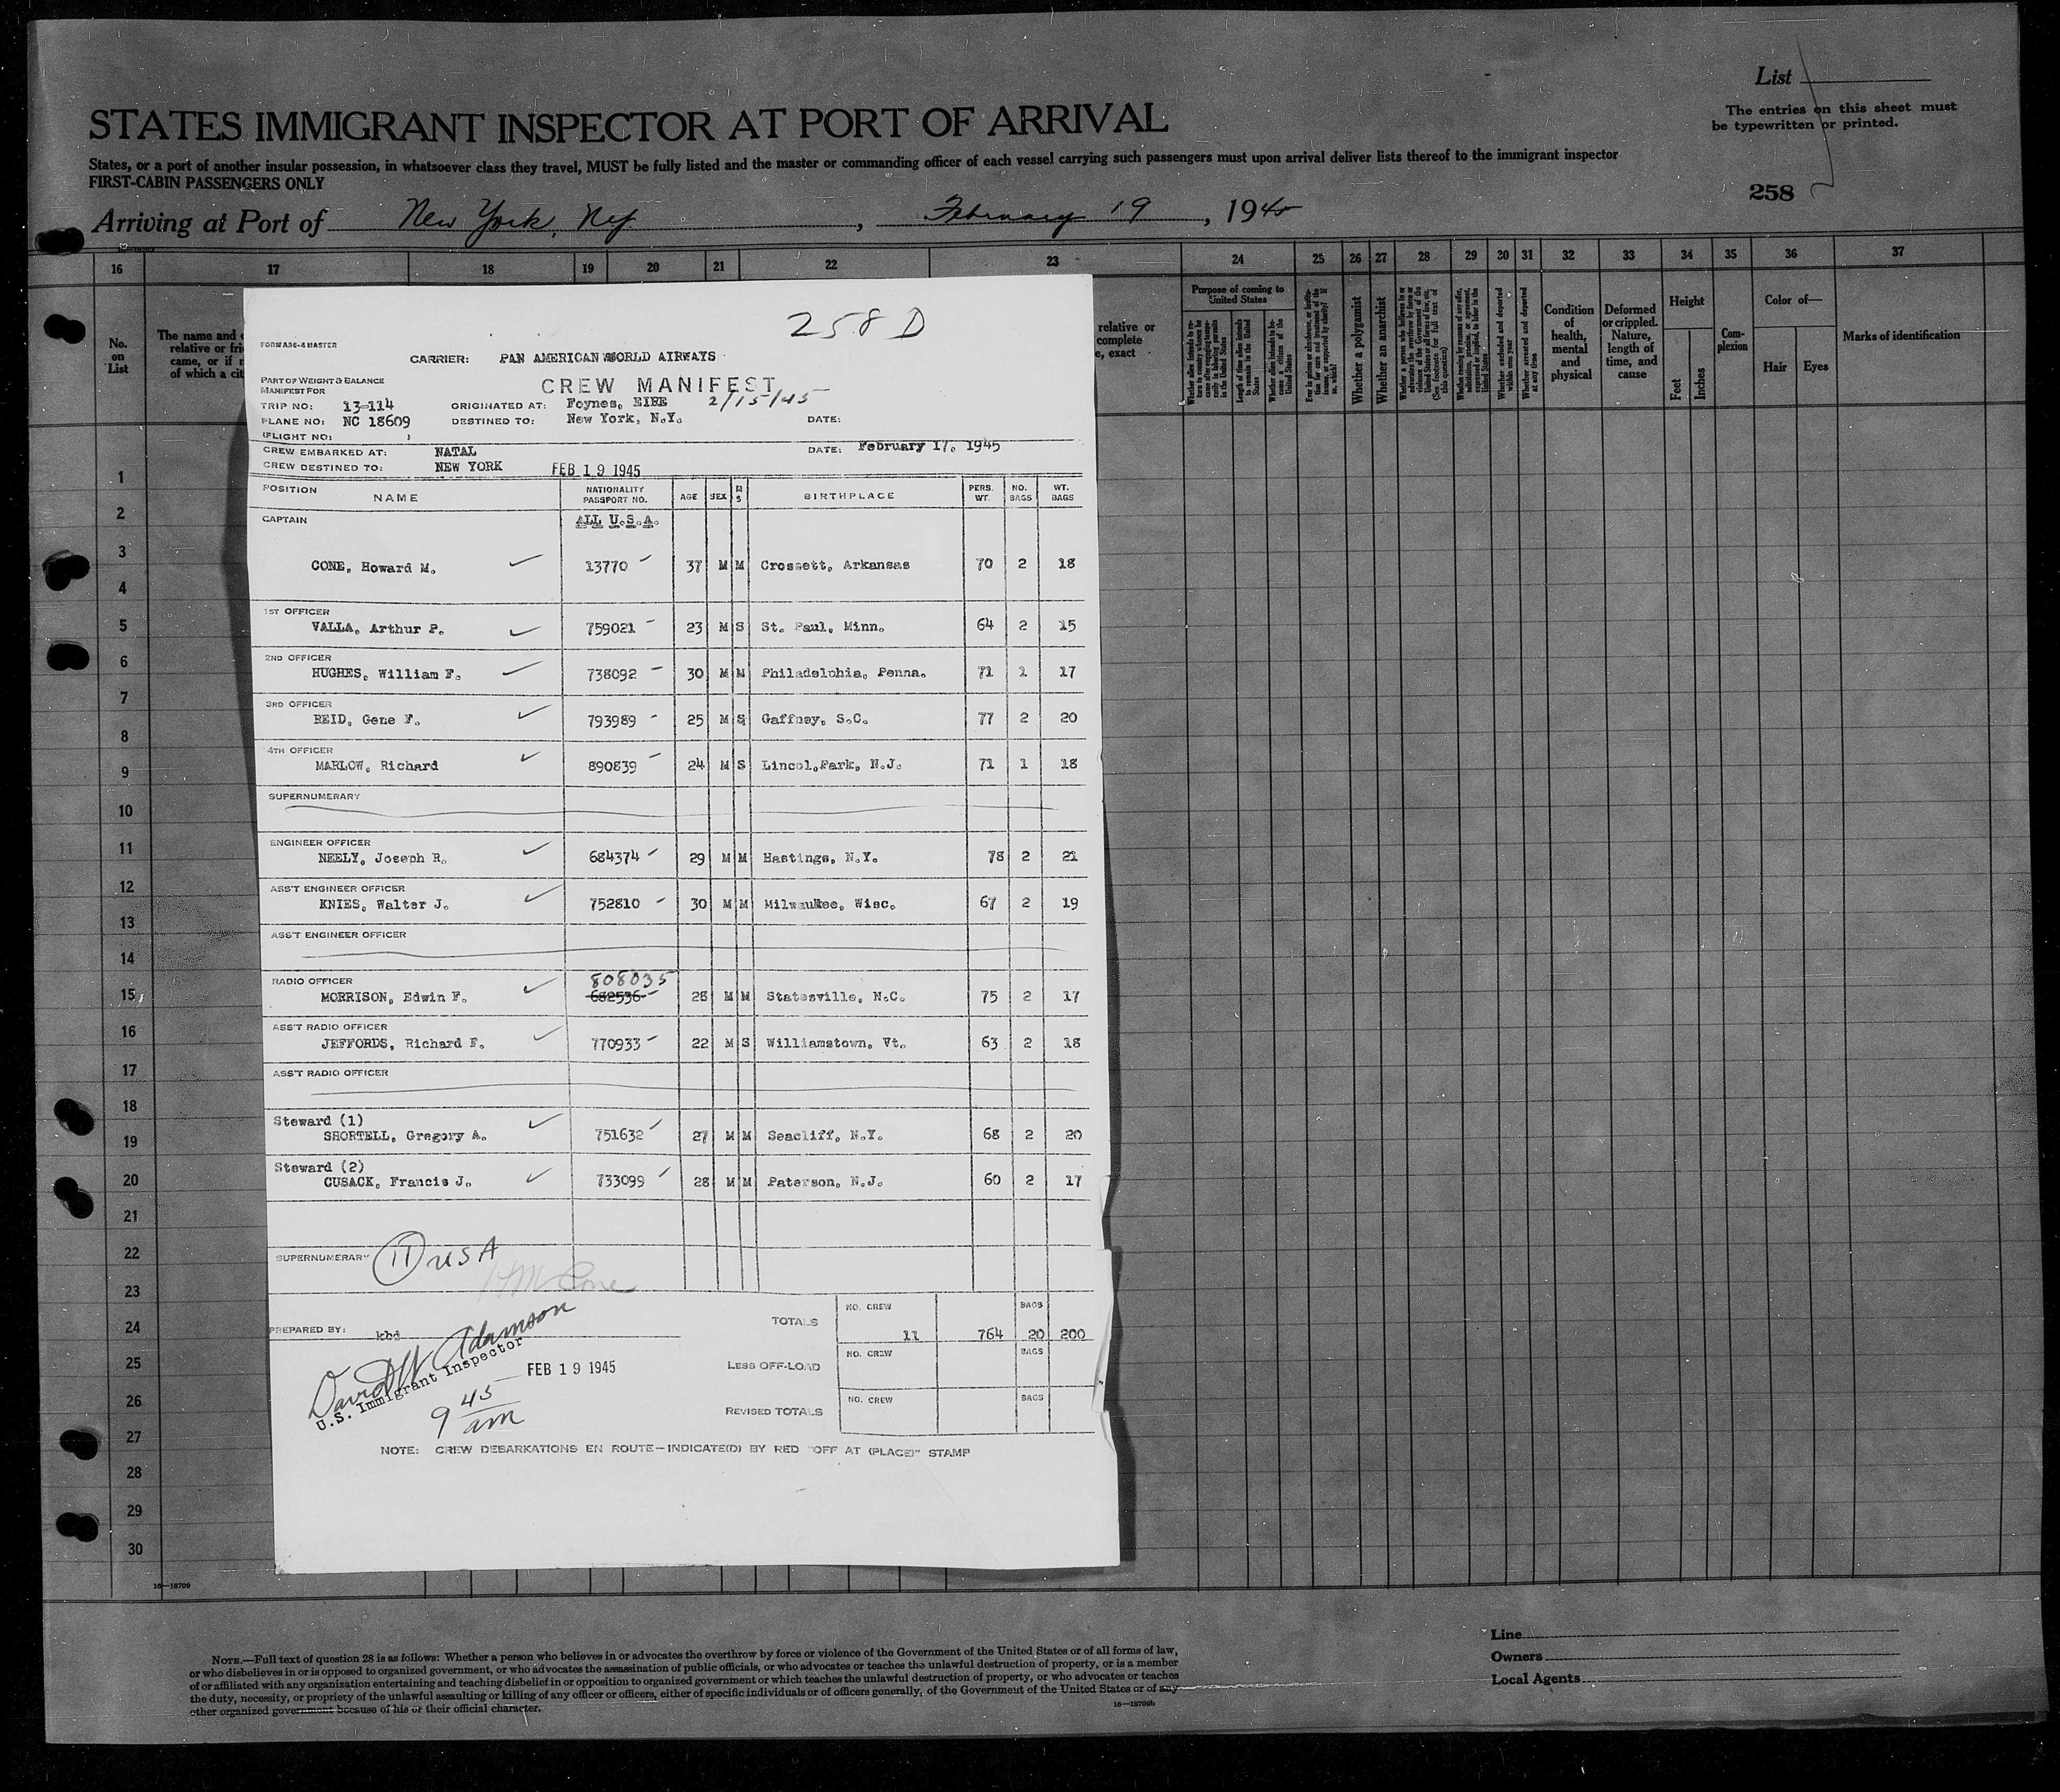 List
The entries on this sheet must
be typewritten or printed.
STATES IMMIGRANT INSPECTOR AT PORT OF ARRIVAL
States, or a port of another insular possession, in whatsoever class they travel, MUST be fully listed and the master or commanding officer of each vessel carrying such passengers must upon arrival deliver lists thereof to the immigrant inspector
FIRST-CABIN PASSENGERS ONLY
258
Arriving at Port of New York, Ny. , February 19 , 1945
16 17 18 19 20 21 22 23 24 25 26 27 28 29 30 31 32 33 34 35 36 37
No. on List
The name and
relative or
came, or if
of which a
relative or
complete
exact
Purpose of coming to United States
Whether a polygamist
Whether an anarchist
Condition of health, mental and physical
Deformed or crippled. Nature, length of time, and cause
Height
Feet
Inches
Com-plexion
Color of—
Hair
Eyes
Marks of identification
258 D
CARRIER: PAN AMERICAN WORLD AIRWAYS
PART OF WEIGHT & BALANCE
MANIFEST FOR
CREW MANIFEST
TRIP NO: 13-114 ORIGINATED AT: Foynes, EIRE 2/15/45
PLANE NO: NC 18609 DESTINED TO: New York, N.Y. DATE:
(FLIGHT NO: )
CREW EMBARKED AT: NATAL DATE: February 17, 1945
CREW DESTINED TO: NEW YORK FEB 19 1945
POSITION NAME NATIONALITY PASSPORT NO. AGE SEX M S BIRTHPLACE PERS. WT. NO. BAGS WT. BAGS
CAPTAIN ALL U.S.A.
CONE, Howard M. 13770 37 M M Crossett, Arkansas 70 2 18
1ST OFFICER
VALLA, Arthur P. 759021 23 M S St. Paul, Minn. 64 2 15
2ND OFFICER
HUGHES, William F. 738092 30 M M Philadelphia, Penna. 71 1 17
3RD OFFICER
REID, Gene F. 793989 25 M S Gaffney, S.C. 77 2 20
4TH OFFICER
MARLOW, Richard 890839 24 M S Lincol,Park, N.J. 71 1 18
SUPERNUMERARY
ENGINEER OFFICER
NEELY, Joseph R. 684374 29 M M Hastings, N.Y. 78 2 21
ASS'T ENGINEER OFFICER
KNIES, Walter J. 752810 30 M M Milwaukee, Wisc. 67 2 19
ASS'T ENGINEER OFFICER
808035
RADIO OFFICER
MORRISON, Edwin F. 682536 28 M M Statesville, N.C. 75 2 17
ASS'T RADIO OFFICER
JEFFORDS, Richard F. 770933 22 M S Williamstown, Vt. 63 2 18
ASS'T RADIO OFFICER
Steward (1)
SHORTELL, Gregory A. 751632 27 M M Seacliff, N.Y. 68 2 20
Steward (2)
CUSACK, Francis J. 733099 28 M M Paterson, N.J. 60 2 17
SUPERNUMERARY 11 USA
HM Cone
TOTALS NO. CREW 11 764 BAGS 20 200
PREPARED BY: kbd
LESS OFF-LOAD NO. CREW BAGS
REVISED TOTALS NO. CREW BAGS
David W Adamson
U.S. Immigrant Inspector
FEB 19 1945
9 45 am
NOTE: CREW DEBARKATIONS EN ROUTE—INDICATE(D) BY RED "OFF AT (PLACE)" STAMP
1
2
3
4
5
6
7
8
9
10
11
12
13
14
15
16
17
18
19
20
21
22
23
24
25
26
27
28
29
30
16—18709
NOTE.—Full text of question 28 is as follows: Whether a person who believes in or advocates the overthrow by force or violence of the Government of the United States or of all forms of law,
or who disbelieves in or is opposed to organized government, or who advocates the assassination of public officials, or who advocates or teaches the unlawful destruction of property, or is a member
of or affiliated with any organization entertaining and teaching disbelief in or opposition to organized government or which teaches the unlawful destruction of property, or who advocates or teaches
the duty, necessity, or propriety of the unlawful assaulting or killing of any officer or officers, either of specific individuals or of officers generally, of the Government of the United States or of any
other organized government because of his or their official character.
16—18709b
Line
Owners
Local Agents